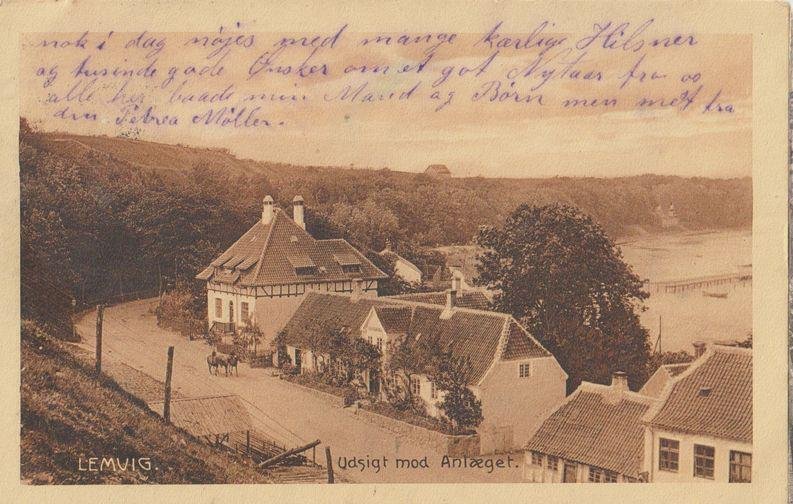 nok i dag nøjes med mange kærlige Hilsner
og tusinde gode Ønsker om et got Nytaar fra os
alle her baade min Mand og Børn men mest fra
din Petrea Møller.
LEMVIG.
Udsigt mod Anlæget.